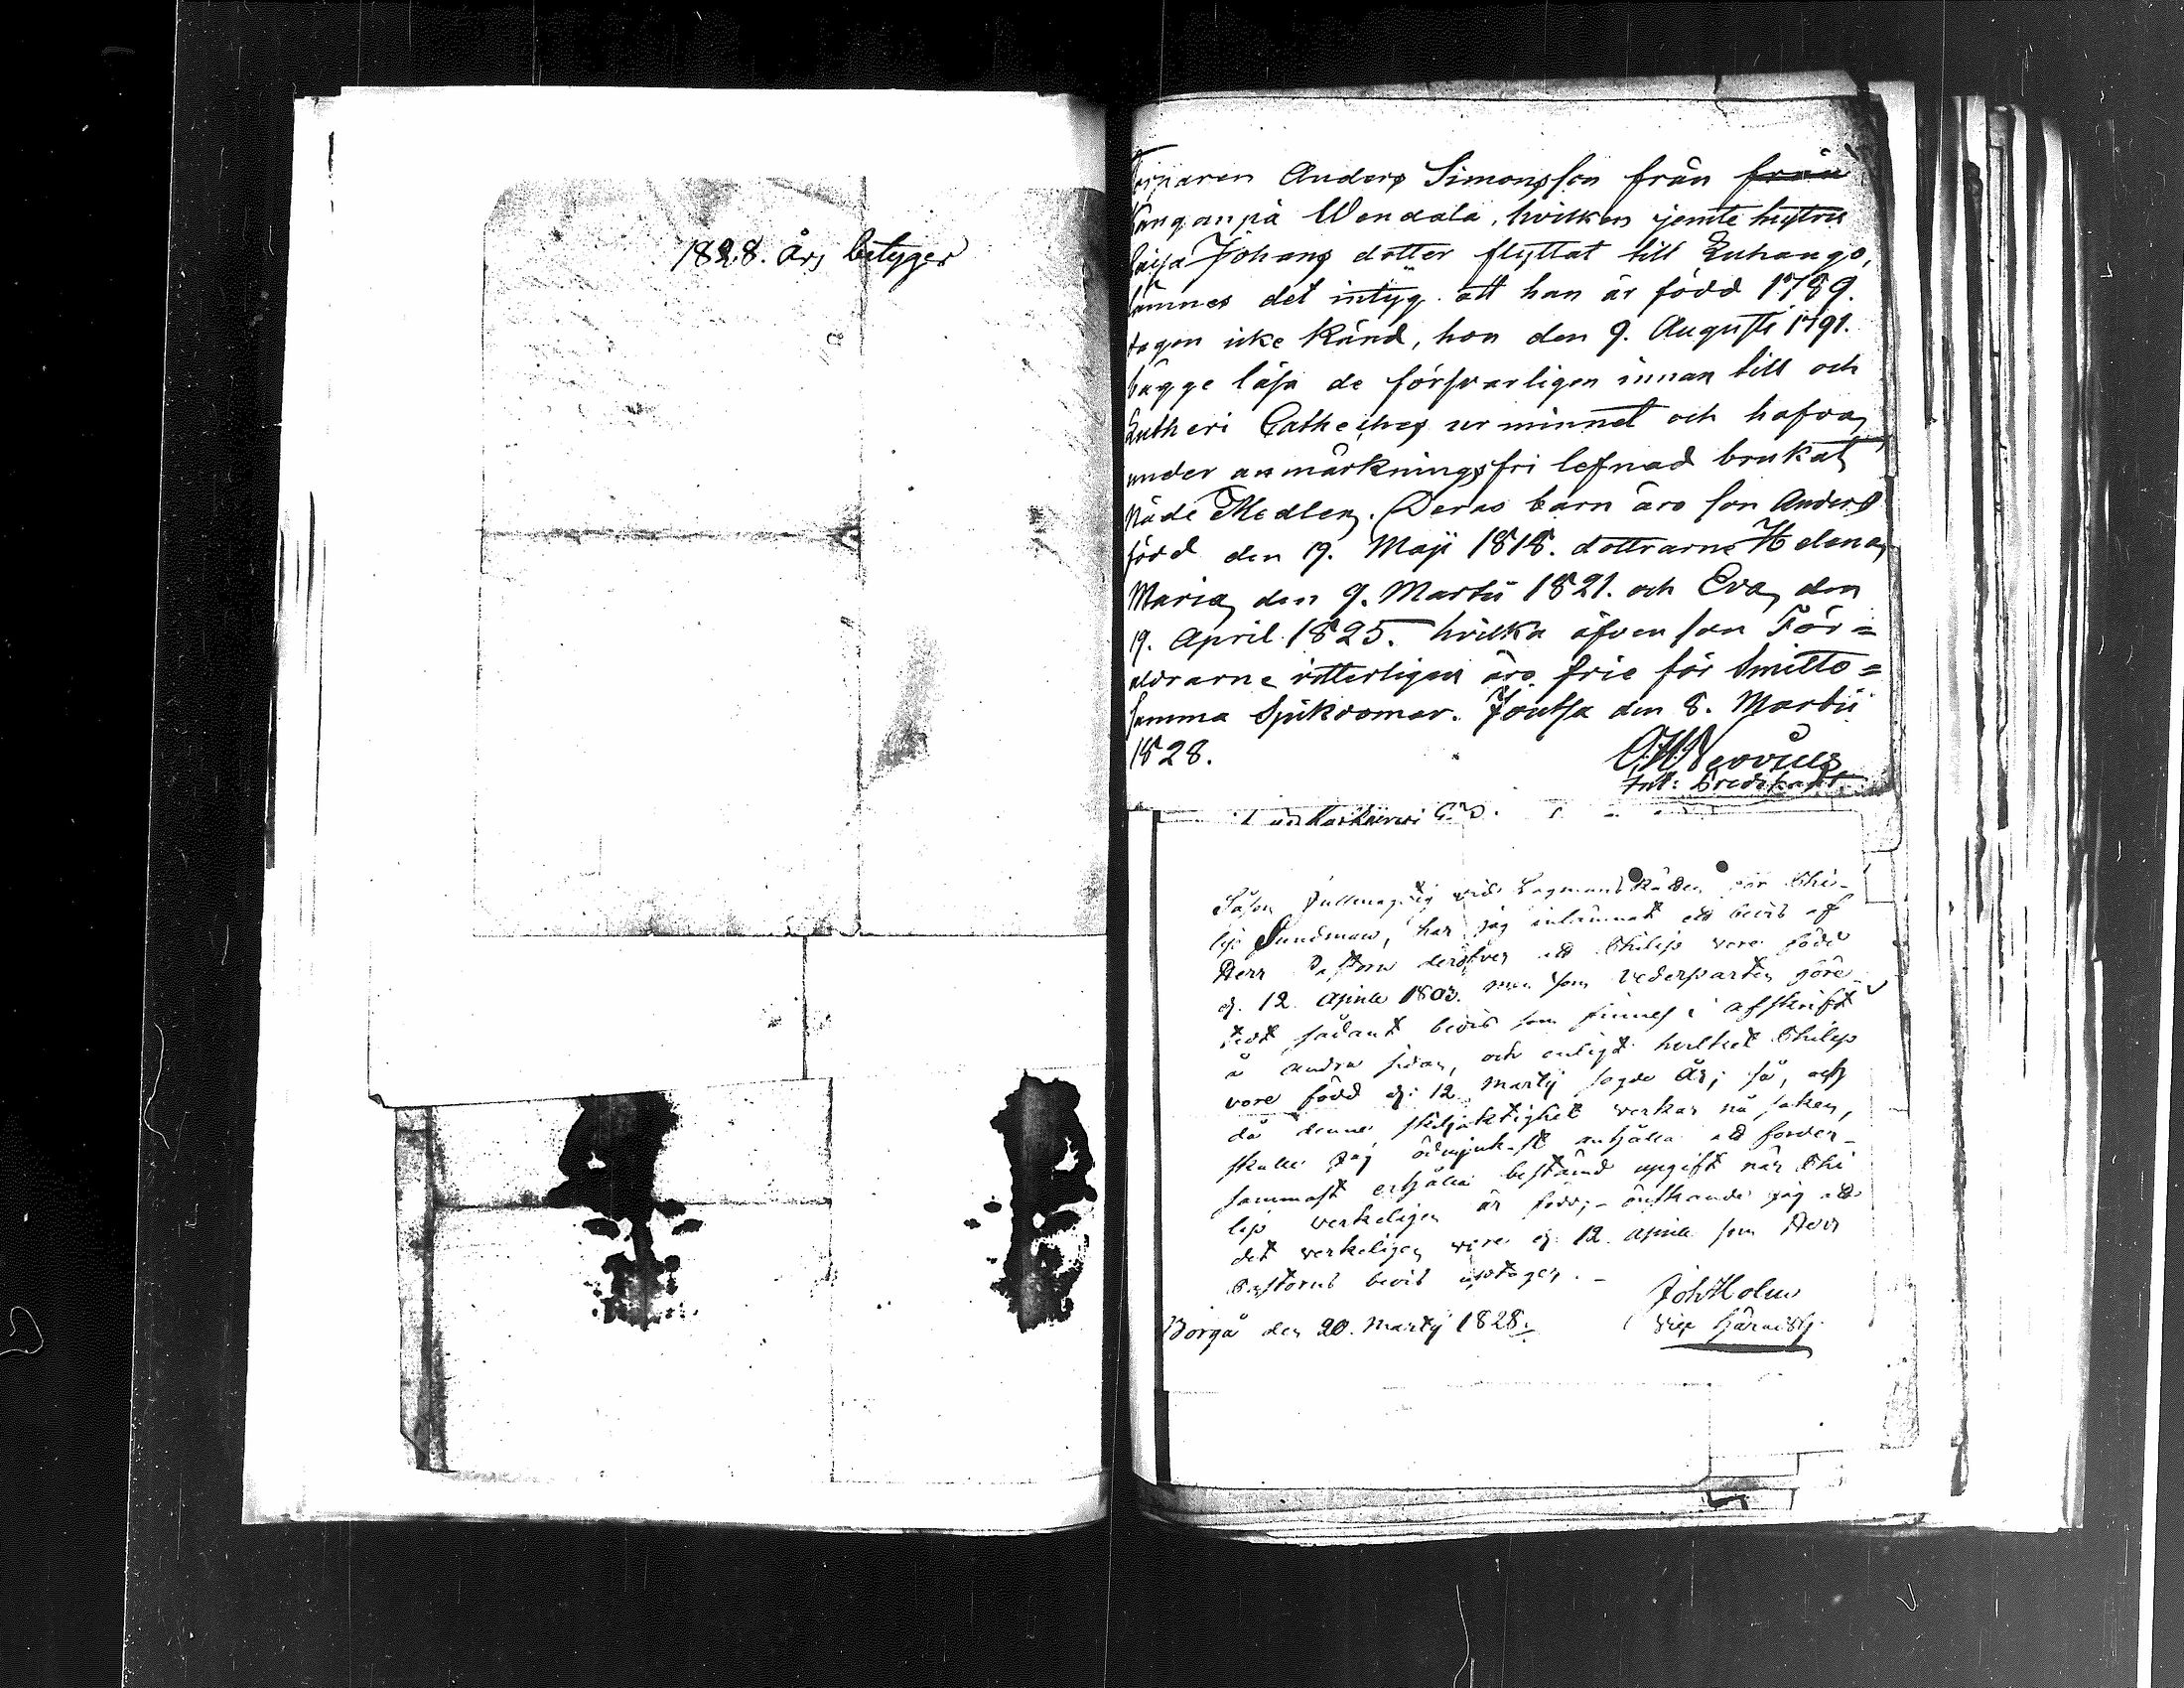 1828. års betyger
Torparen Anders Simonsson från från
Kanganpä Wendala, hvilken jemte hustru
Caisa Johans dotter flyttat till Luhango,
lämnes det intyg att han är född 1789.
dagen icke känd, hon den 9. Augusti 1791.
bägge läsa de försvarligen innan till och
Lutheri Catheches ur minnet och hafva
under anmärkningsfri lefnad brukat
Nåde Medlen. Deras barn äro son Anders
född den 19. Maji 1818. döttrarne Helena
Maria den 9. Martii 1821. och Eva den
19. April 1825. hvilka äfven som För=
äldrarne ytterligen äro frie för smitto=
samma Sjukdomar. Joutsa den 8. Martii
1828.
Såsom Fullmägtig vid Lagmans Rätten för Phi-
lip Sundman, har jag inlämnat ett bevis af
Herr Pastorn deröfver att Philip vore född
d. 12 Aprill 1803. men som vederparten före
tedt sådant bevis som finnes i afskrift
å andra sidan, och enligt hvilket Philip
vore född d: 12 Martij sagde År; så, och
då denne skiljaktighet verkar på saken,
skulle jag ödmjukast anhålla att forder-
sammast erhålla bestämd upgift när Phi
lip verkeligen är född; - önskande jag att
det verkeligen vore d: 12 Aprill som Herr
Pastorns bevis uptager. -
Joh Holm
vice Häradsh.
Borgå den 20. Martij 1828.